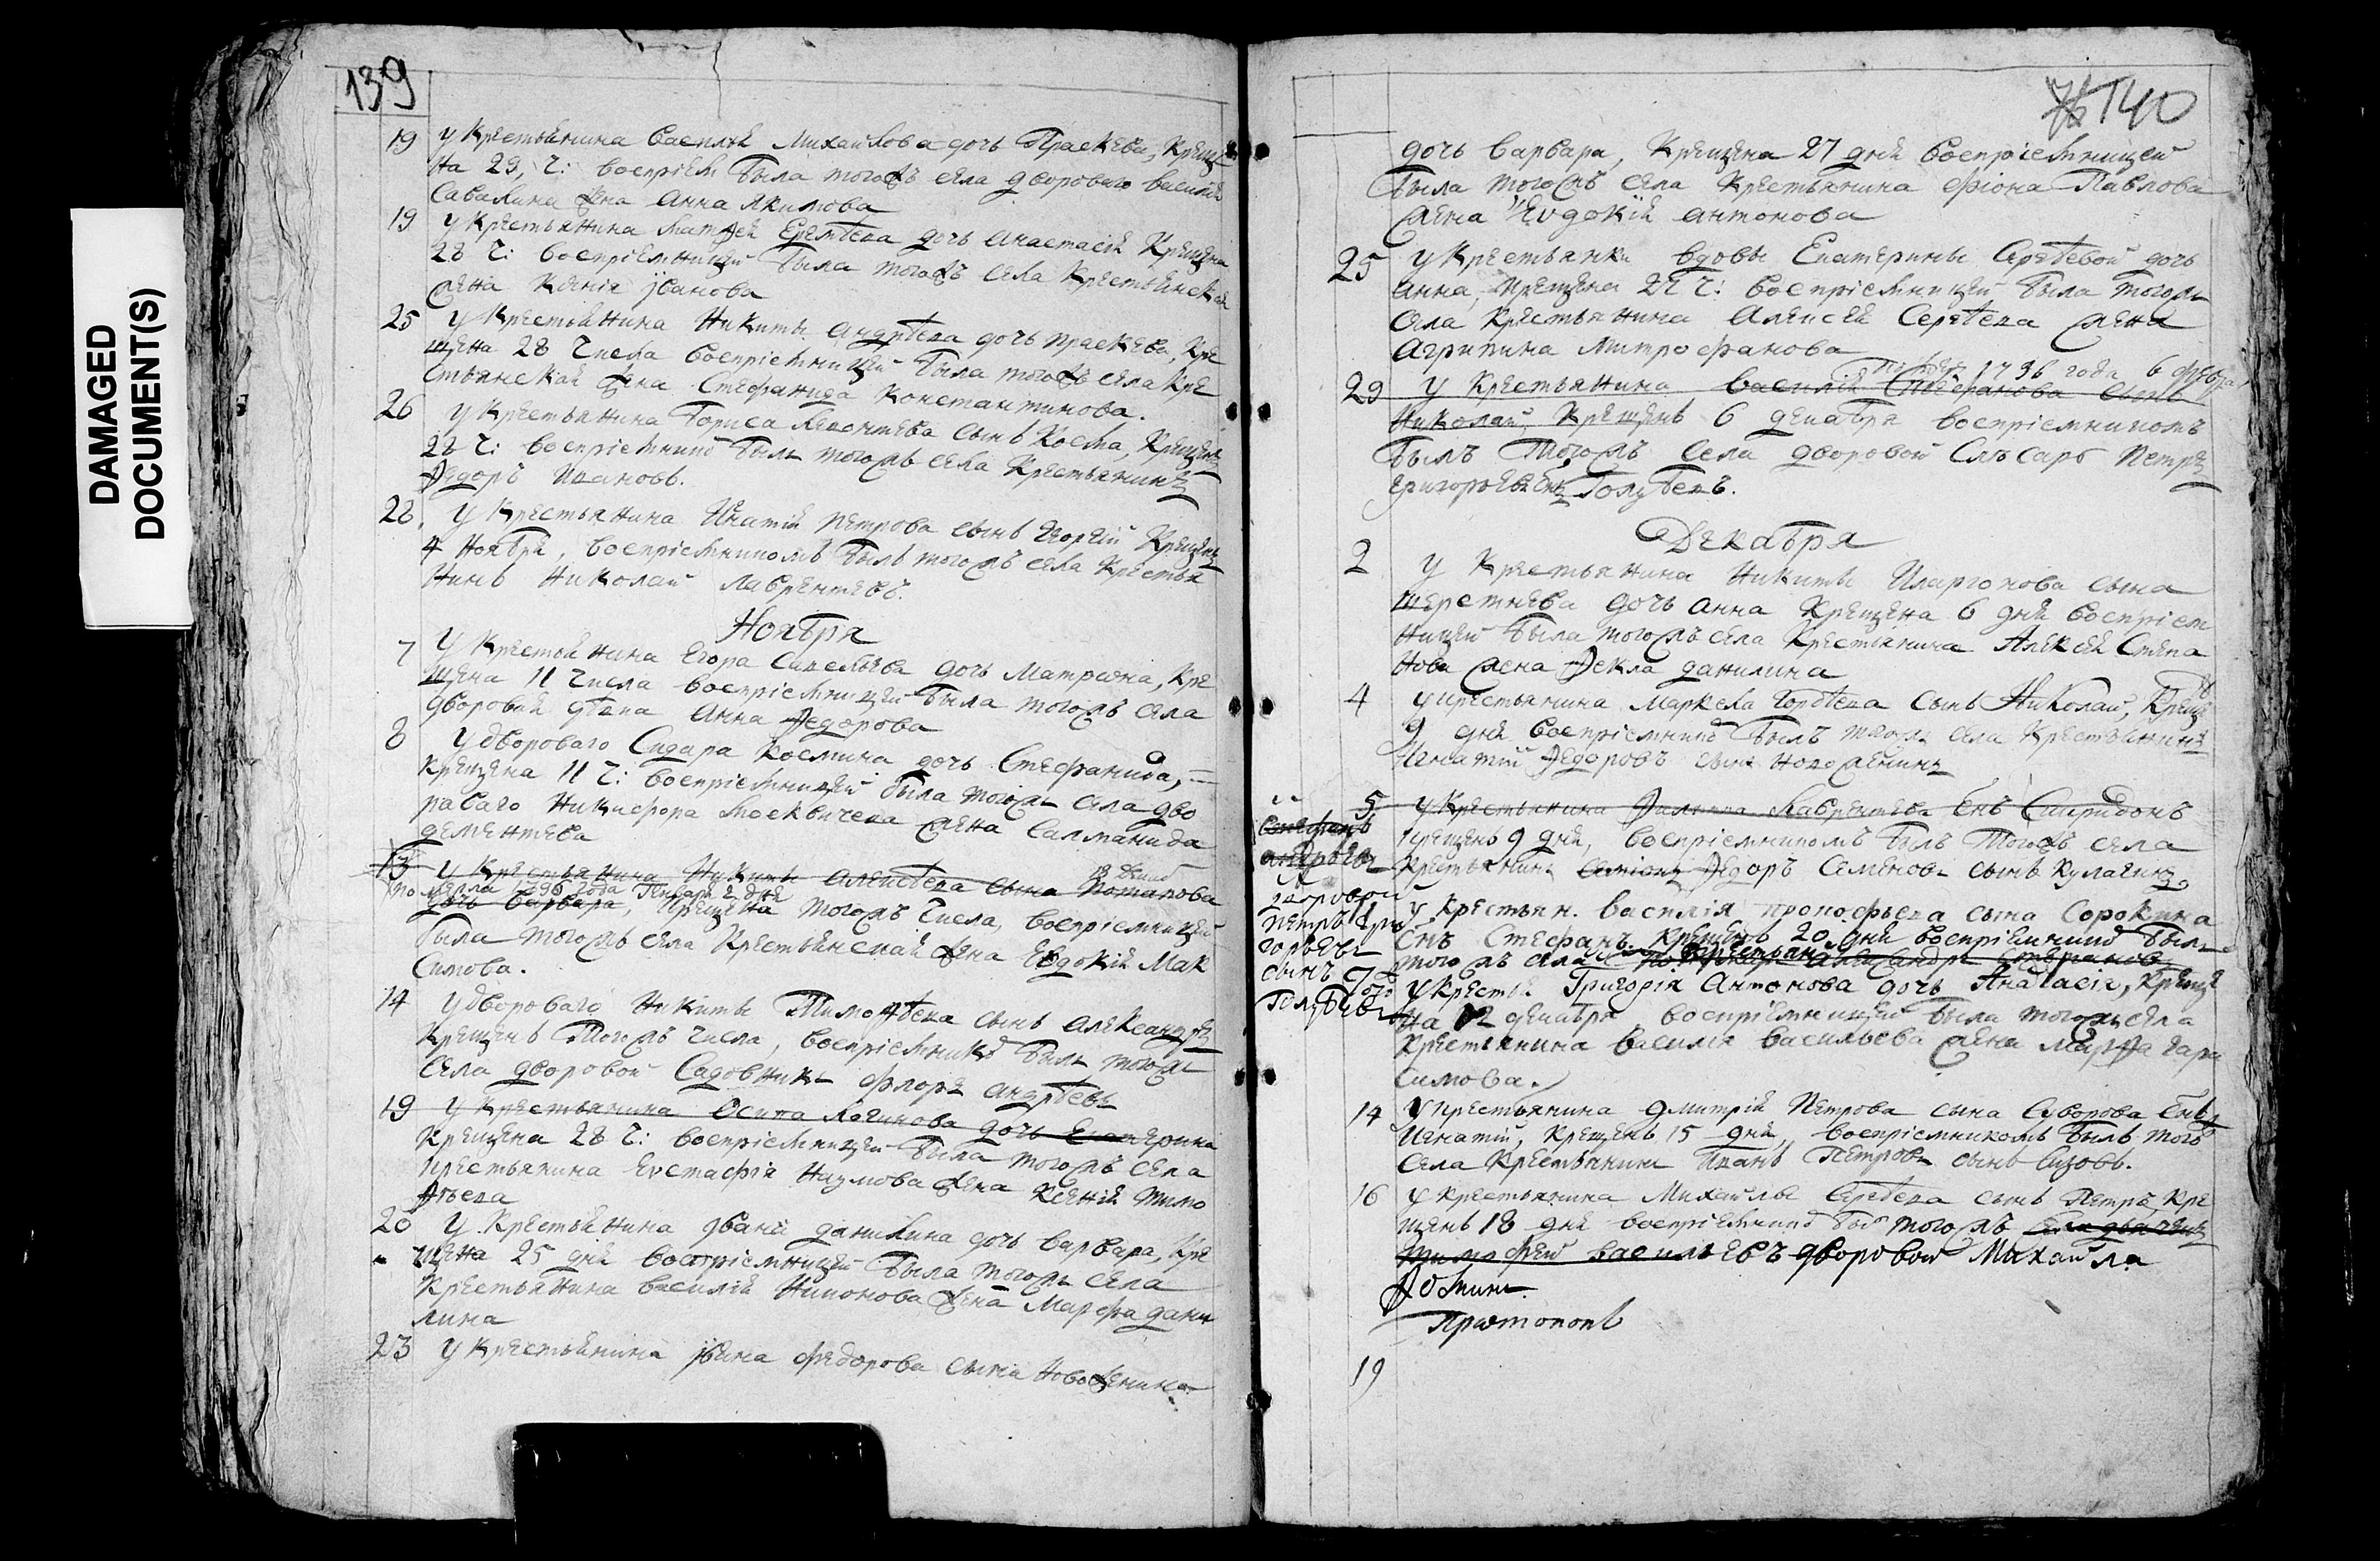 DAMAGED
DOCUMENT(S)
139
19 У Крестьянина Василия Михайлова дочь Праскева, Креще
на 23, ч: воспріем была тогожъ села двороваго Василия
Савалина жена Анна Якимова
19 У Крестьянина Матѳея Еремѣева дочь Анастасия Крещена
28 ч: воспріемницей была тогожъ села Крестьянская
жена Ксения Іванова
25 У Крестьянина Никиты Андрѣева дочь праскева, Кре
щена 28 числа воспріемницей была тогожъ села Кре
стьянская жена Стефанида Константинова.
26 У Крестьянина Бориса Леонтьева сынъ Косма, Крещенъ
28 ч: воспріемникъ былъ тогожъ села Крестьянинъ
Ѳедоръ Ивановъ.
28, У Крестьянина Игнатія Петрова сынъ Георгій Крещенъ
4 Ноября, воспріемникомъ былъ тогожъ села Крестья
нинъ Николай Лаврентьевъ.
Ноября
7 У Крестьянина Егора Савельева дочь Матрона, Кре
щена 11 числа воспріемницей была тогожъ села
дворовая дѣвка Анна Ѳедорова
8 У двороваго Сидара Космина дочь Стефанида,
Крещена 11 ч: воспріемницей была тогожъ села дво
раваго Никифора Москвичева жена Салманида
дементьева
13 У Крестьянина Никиты Алексѣева сына Потапова
померла 1796 года Генваря 2 дня
дочь Варвара, Крещена тогожъ числа, воспріемницей
была тогожъ села Крестьянская жена Евдокия Мак
симова.
14 У двороваго Никиты Тимоѳѣева сынъ Александръ
Крещенъ тогожъ числа, воспріемникъ былъ тогожъ
села дворовой Садовникъ флоръ Андрѣевъ
19 У Крестьянина Осипа Логинова дочь Екатерина
Крещена 28 ч: воспріемницей была тогожъ села
Крестьянина Евстафія Наумова жена Ксения тимо
ѳѣева
20 У Крестьянина Івана данилина дочь Варвара, Кре
щена 25 дня воспріемницей была тогожъ села
Крестьянина Василия Никонова жена Марфа дани
лина
23 У Крестьянина Івана федорова сына Новоженина
140
дочь Варвара, Крещена 27 дня воспріемницей
была тогожъ села Крестьянина фіона Павлова
жена Евдокія антонова
25 У Крестьянки вдовы Екатерины Сергѣевой дочь
Анна, Крещена 27 ч: воспріемницей была тогожъ
села Крестьянина Алексѣя Сергѣева жена
Агрипина Митрофанова
1796 года 6 февра
29 У Крестьянина Василія Стефанова сынъ
Николай, Крещенъ 6 декабря воспріемникомъ
былъ тогожъ села дворовой Слѣсарь Петръ
григорьевъ Голубевъ.
Декабря
2 У Крестьянина Никиты Иларіонова сына
Шереметева дочь Анна Крещена 6 дня воспріем
ницей была тогожъ села Крестьянина Алексѣя Степа
нова жена Ѳекла данилина
4 У Крестьянина Маркела Гордѣева сынъ Николай, Креще
9 дня воспріемникъ былъ тогожъ села Крестьянинъ
Игнатій Ѳедоровъ сынъ Новоженинъ
5 У Крестьянина Филипа Лаврентьева снъ Спиридонъ
Крещенъ 9 дня, воспріемникомъ былъ тогожъ села
Крестьянинъ Ѳедоръ Семеновъ сынъ Кулагинъ
Стефанъ
андрѣевъ
дворовой
Петръ гри
горьевъ
сынъ
Голубевъ
У Крестьян. Василія прокофьева сына Сорокина
снъ Стефанъ Крещенъ 20 дня воспріемникъ былъ
тогожъ села Крестьян Александръ
У Крестья Григорія Антонова дочь Анатасія, Креще
на 12 декабря воспріемницей была тогожъ села
Крестьянина Василія Васильева жена Марѳа гара
симова.
14 У Крестьянина дмитрія Петрова сына Суворова снъ
Игнатій, Крещенъ 15 дня, воспріемникомъ былъ того
села Крестьянинъ Иванъ Петровъ сынъ Сизовъ.
16 У Крестьянина Михайлы Сергѣева сынъ Петръ Кре
щенъ 18 дня воспріемникъ бы тогожъ
тимофей васильевъ дворовой Михайла
Ѳомин
Протопопов
19